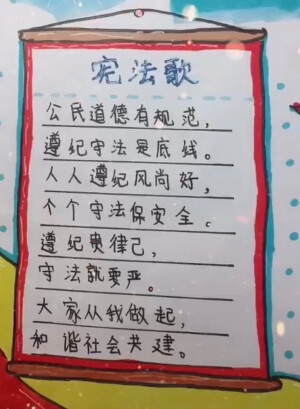 宪法歌
公民道德有规范，
遵纪守法是底线。
人人遵纪风尚好，
个个守法保安全。
遵纪贵律己，
守法就要严。
大家从我做起，
和谐社会共建。